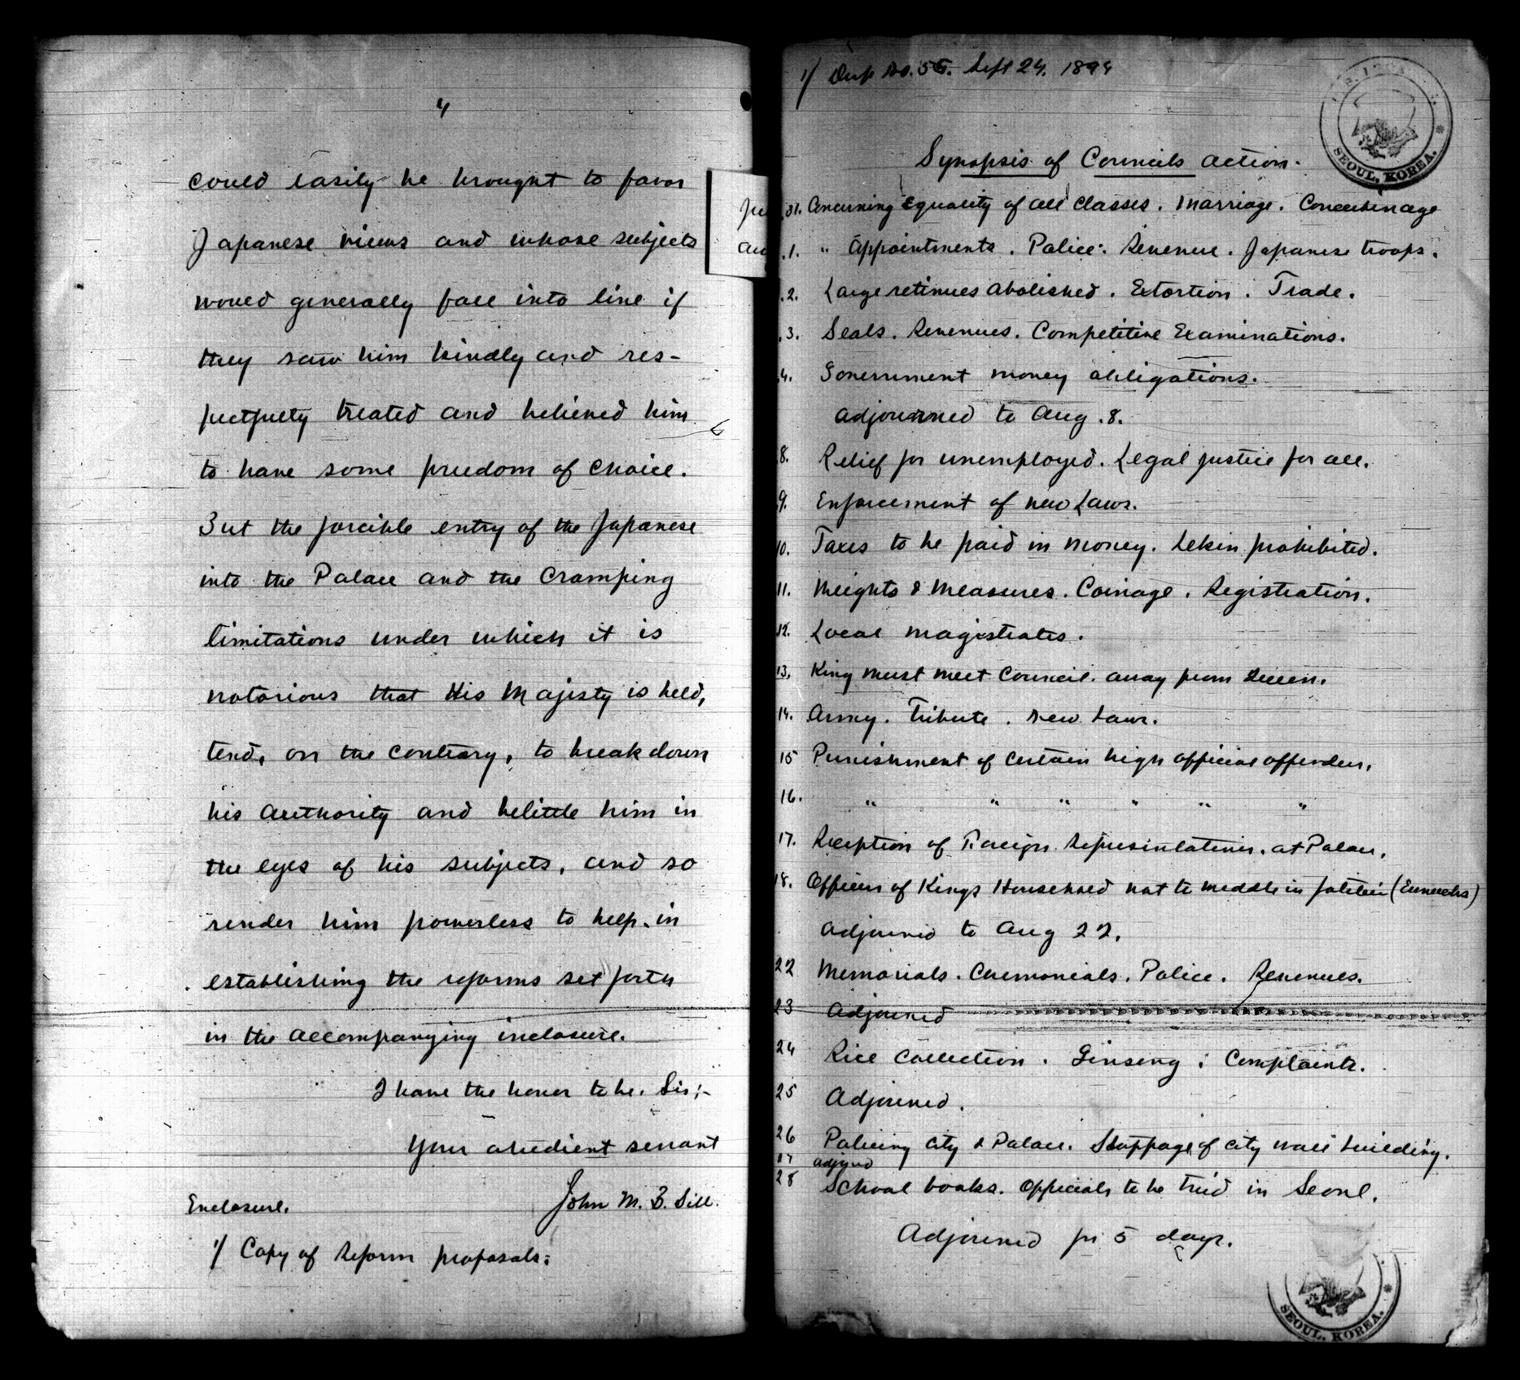 4
could easily be brought to favor
Japanese views and whose subjects
would generally fall into line if
they saw him kindly and res-
pectfully treated and believed him
to have some freedom of choice.
But the forcible entry of the Japanese
into the Palace and the cramping
limitations under which it is
notorious that His Majesty is held,
tend, on the contrary, to break down
his authority and belittle him in
the eyes of his subjects, and so
render him powerless to help in
establishing the reforms set forth
in the accompanying inclosure.
I have the honor to be, Sir;-
Your obedient servant
John M. B. Sill.
Enclosure.
1/ Copy of Reform proposals:
1/ Disp No. 55. Sept 24. 1894
SEOUL, KOREA.
Synopsis of Councils action.
31. Concerning Equality of all Classes. Marriage. Concubinage
1. " Appointments. Police: Revenue. Japanese troops.
2. Large retinues abolished. Extortion. Trade.
3. Seals. Revenues. Competitive Examinations.
4. Government money obligations.
adjourned to Aug. 8.
8. Relief for unemployed. Legal justice for all.
9. Enforcement of new Laws.
10. Taxes to be paid in money. Lekin prohibited.
11. Weights & Measures. Coinage. Registration.
12. Local magistrates.
13. King must meet Council away from Queen.
14. Army. Tribute. New Laws.
15 Punishment of certain high official offenders.
16. " " " " " "
17. Reception of Foreign Representatives at Palace.
18. Officers of Kings Household not to meddle in (Eunuchs)
adjourned to Aug 22.
22 Memorials. Ceremonials. Police. Revenues.
23 Adjourned
24 Rice Collection. Ginseng; Complaints.
25 Adjourned.
26 Policing city & Palace. Stoppage of city wall building.
27 adjrnd
28 School books. Officials to be tried in Seoul.
Adjourned for 5 days.
SEOUL, KOREA.